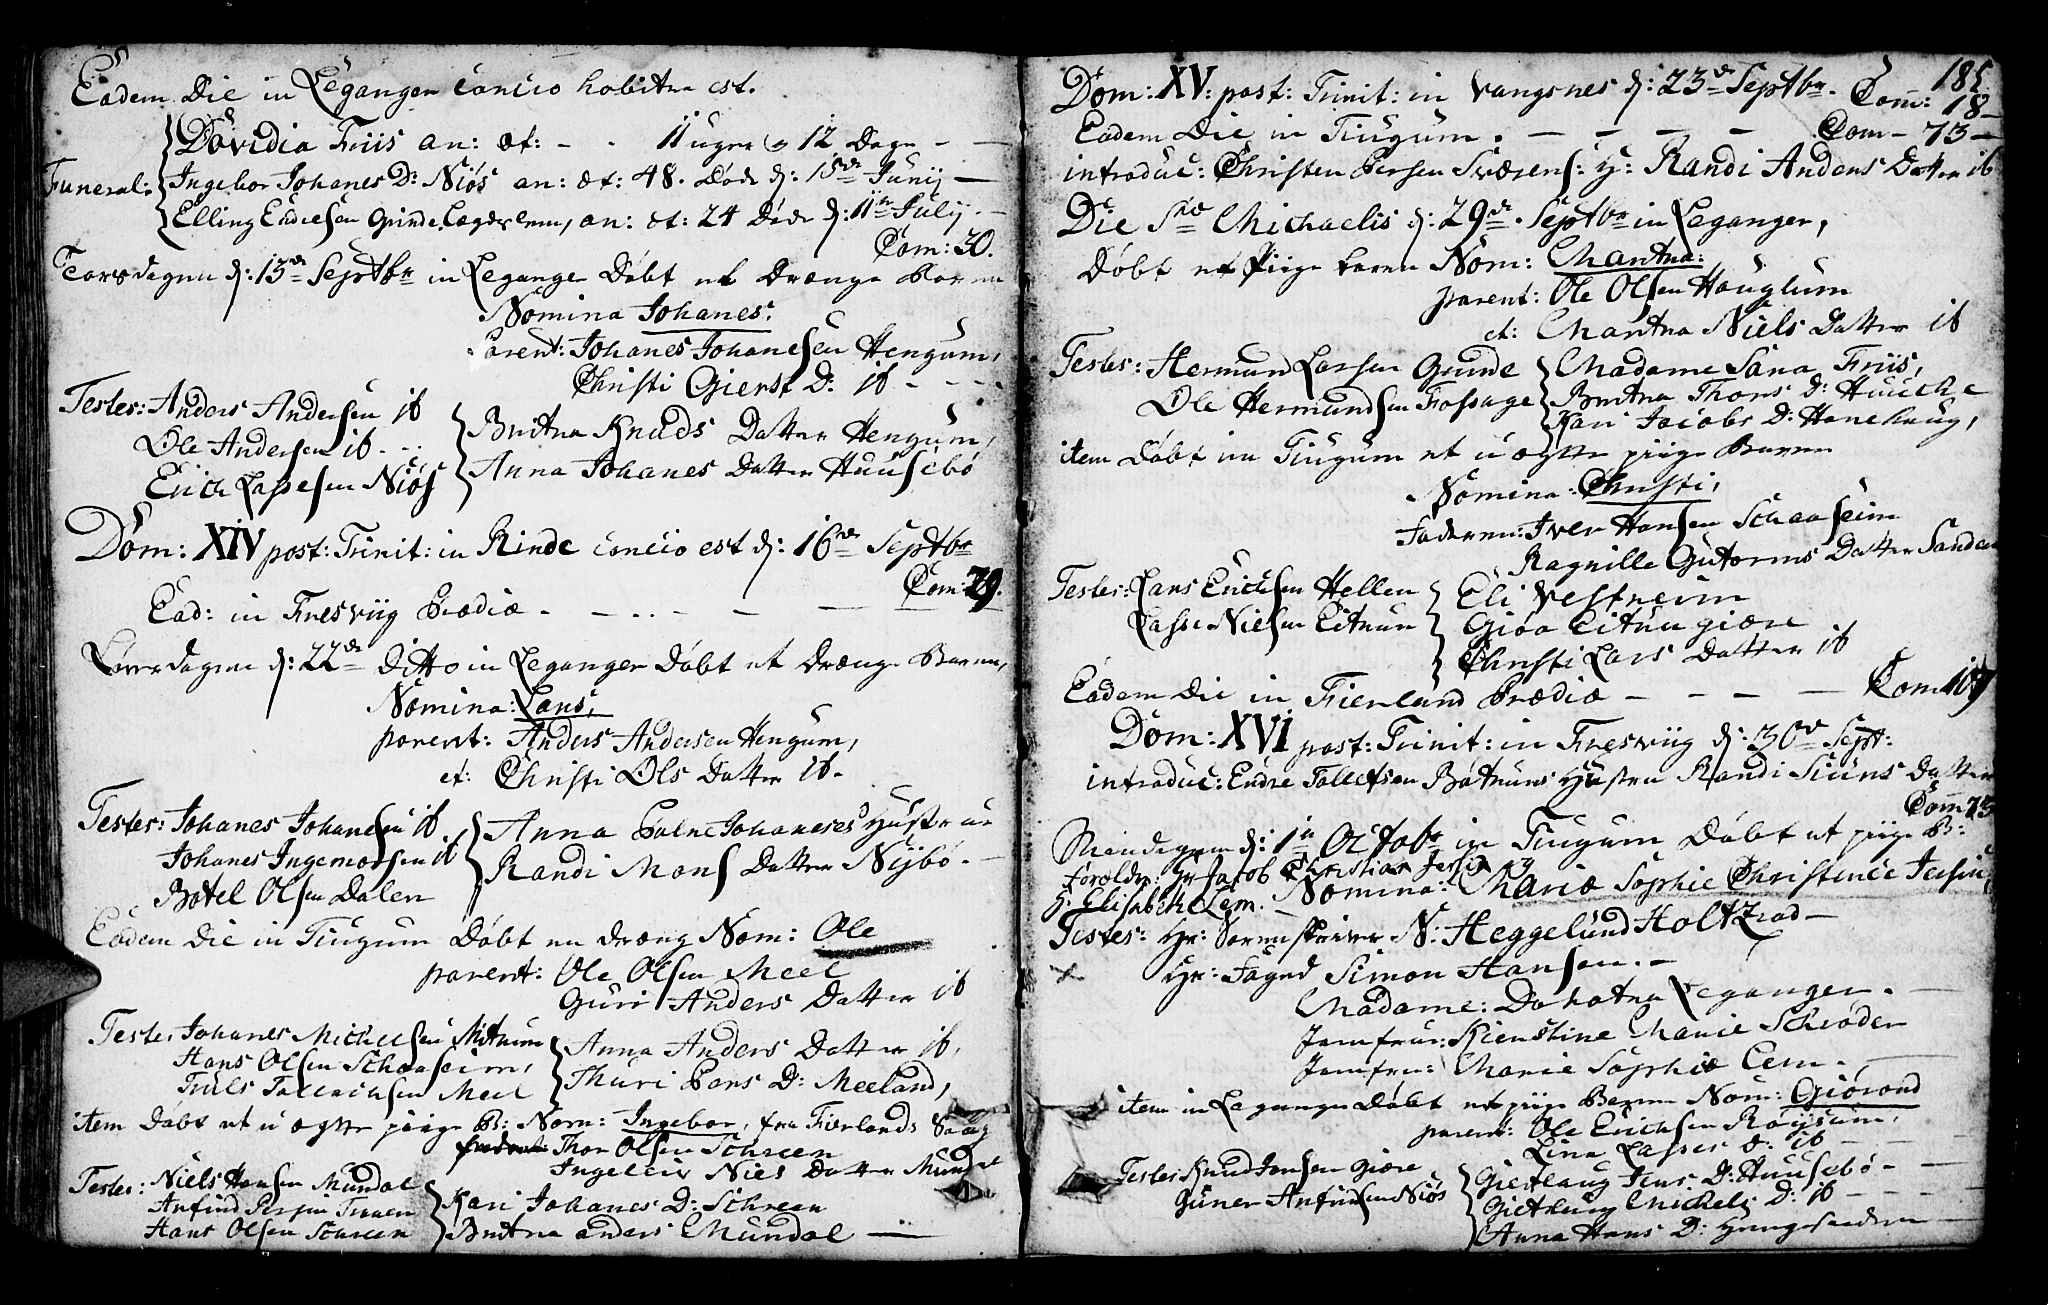 Eadem Die in Leganger concio habita est.
Davidia Friis an: æt: - - 11 uger & 12 Dage - -
Funeral: Ingebor Johanes D: Niøs an: æt: 48. Døde d: 15de Junij -
Elling Endresen Grinde Lægdslem, an: æt: 24 Døde d: 11te July. -
Com: 30.
Torsdagen d: 13de Septbr in Leganger Døbt et Drænge Barn
Nomina Johanes.
Parent: Johanes Johanesen Hengum,
Christi Gierst D: ib - - -
Testes: Anders Andersen ib
Ole Andersen ib - -
Erich Lassesen Niøs
Britha Knuds Datter Hengum,
Anna Johanes Datter Huusebø
Dom: XIV post: Trinit: in Rinde concio est d: 16de Septbr
Com: 79.
Ead: in Fresviig Prædiæ - - - - -
Løverdagen d: 22de Ditto in Leganger Døbt et Drænge Barn,
Nomina: Lars,
parent: Anders Andersen Hengum,
et: Christi Ols Datter ib -
Testes: Johanes Johansen ib.
Johanes Ingemorsen ib
Botel Olsen Dalen
Anna Johaneses Hustrue
Randi Mons Datter Nybø. -
Eadem Die in Tiugum Døbt en dræng Nom: Ole
parent: Ole Olsen Meel
Guri Anders Datter ib
Testes Johanes Michelsen Nitrum
Hans Olsen Schaaseim,
Truls Tollachsen Meel
Anna Anders Datter ib,
Thuri Pers D: Meeland,
item Døbt et u ægte piige B: Nom: Ingebor, fra Fierlands Sogn
Thor Olsen Schreen
Ingeleiv Niels Datter Mundal
Testes: Niels Hansen Mundal
Anfind Persen
Hans Olsen Schreen
Kari Johanes D: Schreen
Britha anders Mundal -
185
Dom: XV: post: Trinit: in Vangsnes d: 23de Septbr. Com: 18 -
Eadem Die in Tiugum. - - - - Com - 73 -
introduc: Christen Persen Sværens: H: Randi Anders Datter ib
Die Sti Michaelis d: 29de. Septbr in Leganger,
Døbt et Piige barn Nom: Martha:
parent: Ole Olsen Houglum
et: Martha Niels Datter ib
Testes: Hermund Larsen Grinde
Ole Hermundsen Fossage
Madame Sara Friis,
Britha Thors D: Huuche
Kari Jacobs D: Hanehaug,
item Døbt in Tiugum et u ægte piige Barn
Nomina: Christi,
Faderen: Iver Hansen Schaaseim
Ragnille Gutorms Datter Sande
Testes: Lars Erichsen Hellen
Lasse Nielsen Eitrun
Eli Vestreim
Giøa Eitrungiære
Christi Lars Datter ib
Eadem Die in Fierland Prædiæ - - - - Com 107
Dom: XVI post: Trinit: in Fresviig d: 30de Sept:
introduc: Endre Tollefsen Bøtnuns Hustru Randi Siuns Datter
Com 75
Mandagen d: 1te Octobr in Tiugum Døbt et piige B:
Forældre: Hr Jacob Christian Jersin og
H: Elisabeth Lem. Nomina: Mariæ Sophie Christence Jersin,
Testes: Hr: Sorenskriver N: Heggelund Holtzrad -
Hr: Foged Simon Hansen. -
Madame: Dorothea Leganger. -
Jomfrue: Kierstine Marie Schrøder
Jomfru: Marie Sophie Lem. -
item in Leganger Døbt et piige Barn Nom: Giørond
parent: Ole Erichsen Røysum,
Lina Lasses D: ib -
Testes Knud Jensen Giære
Guner Anfinsen Niøs
Giertlaug Jens D: Huusebø - -
Giertlaug Michels D: ib - -
Anna Hans D: Hengesanden -